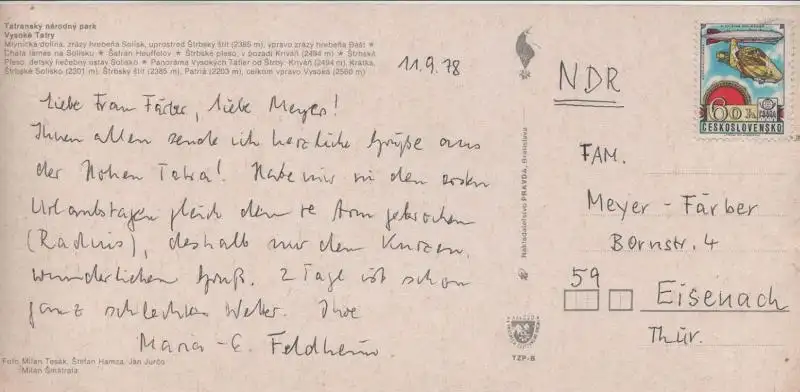 Tatranský národný park
Vysoké Tatry
Mlynická dolina, zrázy hrebeňa Solísk, uprostred Štrbský štít (2385 m), vpravo zrázy hrebeňa Bášt ★
Chata James na Solisku ★ Šafran Heuffelov ★ Štrbské pleso, v pozadí Kriváň (2494 m) ★ Štrbské
Pleso, detský liečebný ústav Solisko ★ Panoráma Vysokých Tatier od Štrby. Kriváň (2494 m), Krátka,
Štrbské Solisko (2301 m), Štrbský štít (2385 m), Patria (2203 m), celkom vpravo Vysoká (2560 m)
11.9.78
Liebe Frau Färber, liebe Meyer!
Ihnen allen sende ich herzliche Grüße aus
der Hohen Tatra! Habe mir in den ersten
Urlaubstagen gleich den re Arm gebrochen
(Radius), deshalb nur den kurzen,
wunderlichen Gruß. 2 Tage ist schon
ganz schlechtes Wetter. Ihre
Maria-E. Feldheim
Foto Milan Tesák, Štefan Hamza, Ján Jurčo
Milan Šmátrala
Nakladateľstvo PRAVDA, Bratislava
TZP-B
60 h
ČESKOSLOVENSKO
NDR
FAM.
Meyer - Färber
Bornstr. 4
59
Eisenach
Thür.